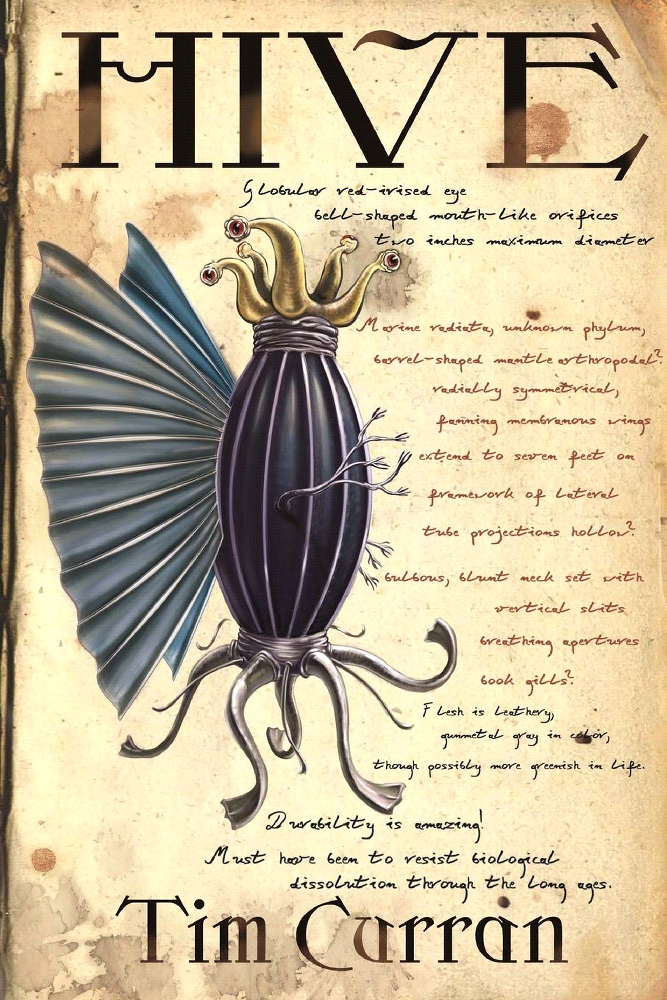 HIVE
Globular red-irised eye
bell-shaped mouth-like orifices
two inches maximum diameter
Marine radiata, unknown phylum,
barrel-shaped mantle arthropodal?
radially symmetrical,
fanning membranous wings
extend to seven feet on
framework of lateral
tube projections hollow?
bulbous, blunt neck set with
vertical slits
breathing apertures
book gills?
Flesh is leathery,
gunmetal gray in color,
though possibly more greenish in life.
Durability is amazing!
Must have been to resist biological
dissolution through the long ages.
Tim Curran